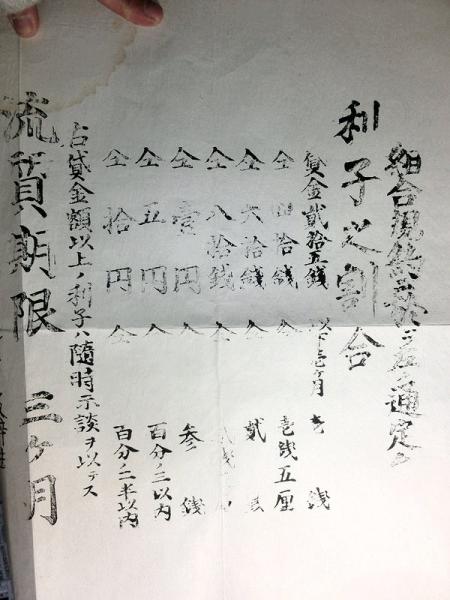 組合規約 左 通定ム
利子之割合
貸金貳拾五錢 以下壱ヶ月 壱 錢
仝 四拾錢 仝 壱錢五厘
仝 六拾錢 仝 貳 錢
仝 八拾錢 仝
仝 壹円 仝 参 錢
仝 五円 仝 百分ノ三以内
仝 拾円 仝 百分ノ二半以内
右貸金額以上ノ利子ハ隨時示談ヲ以テス
流質期限 三ヶ月